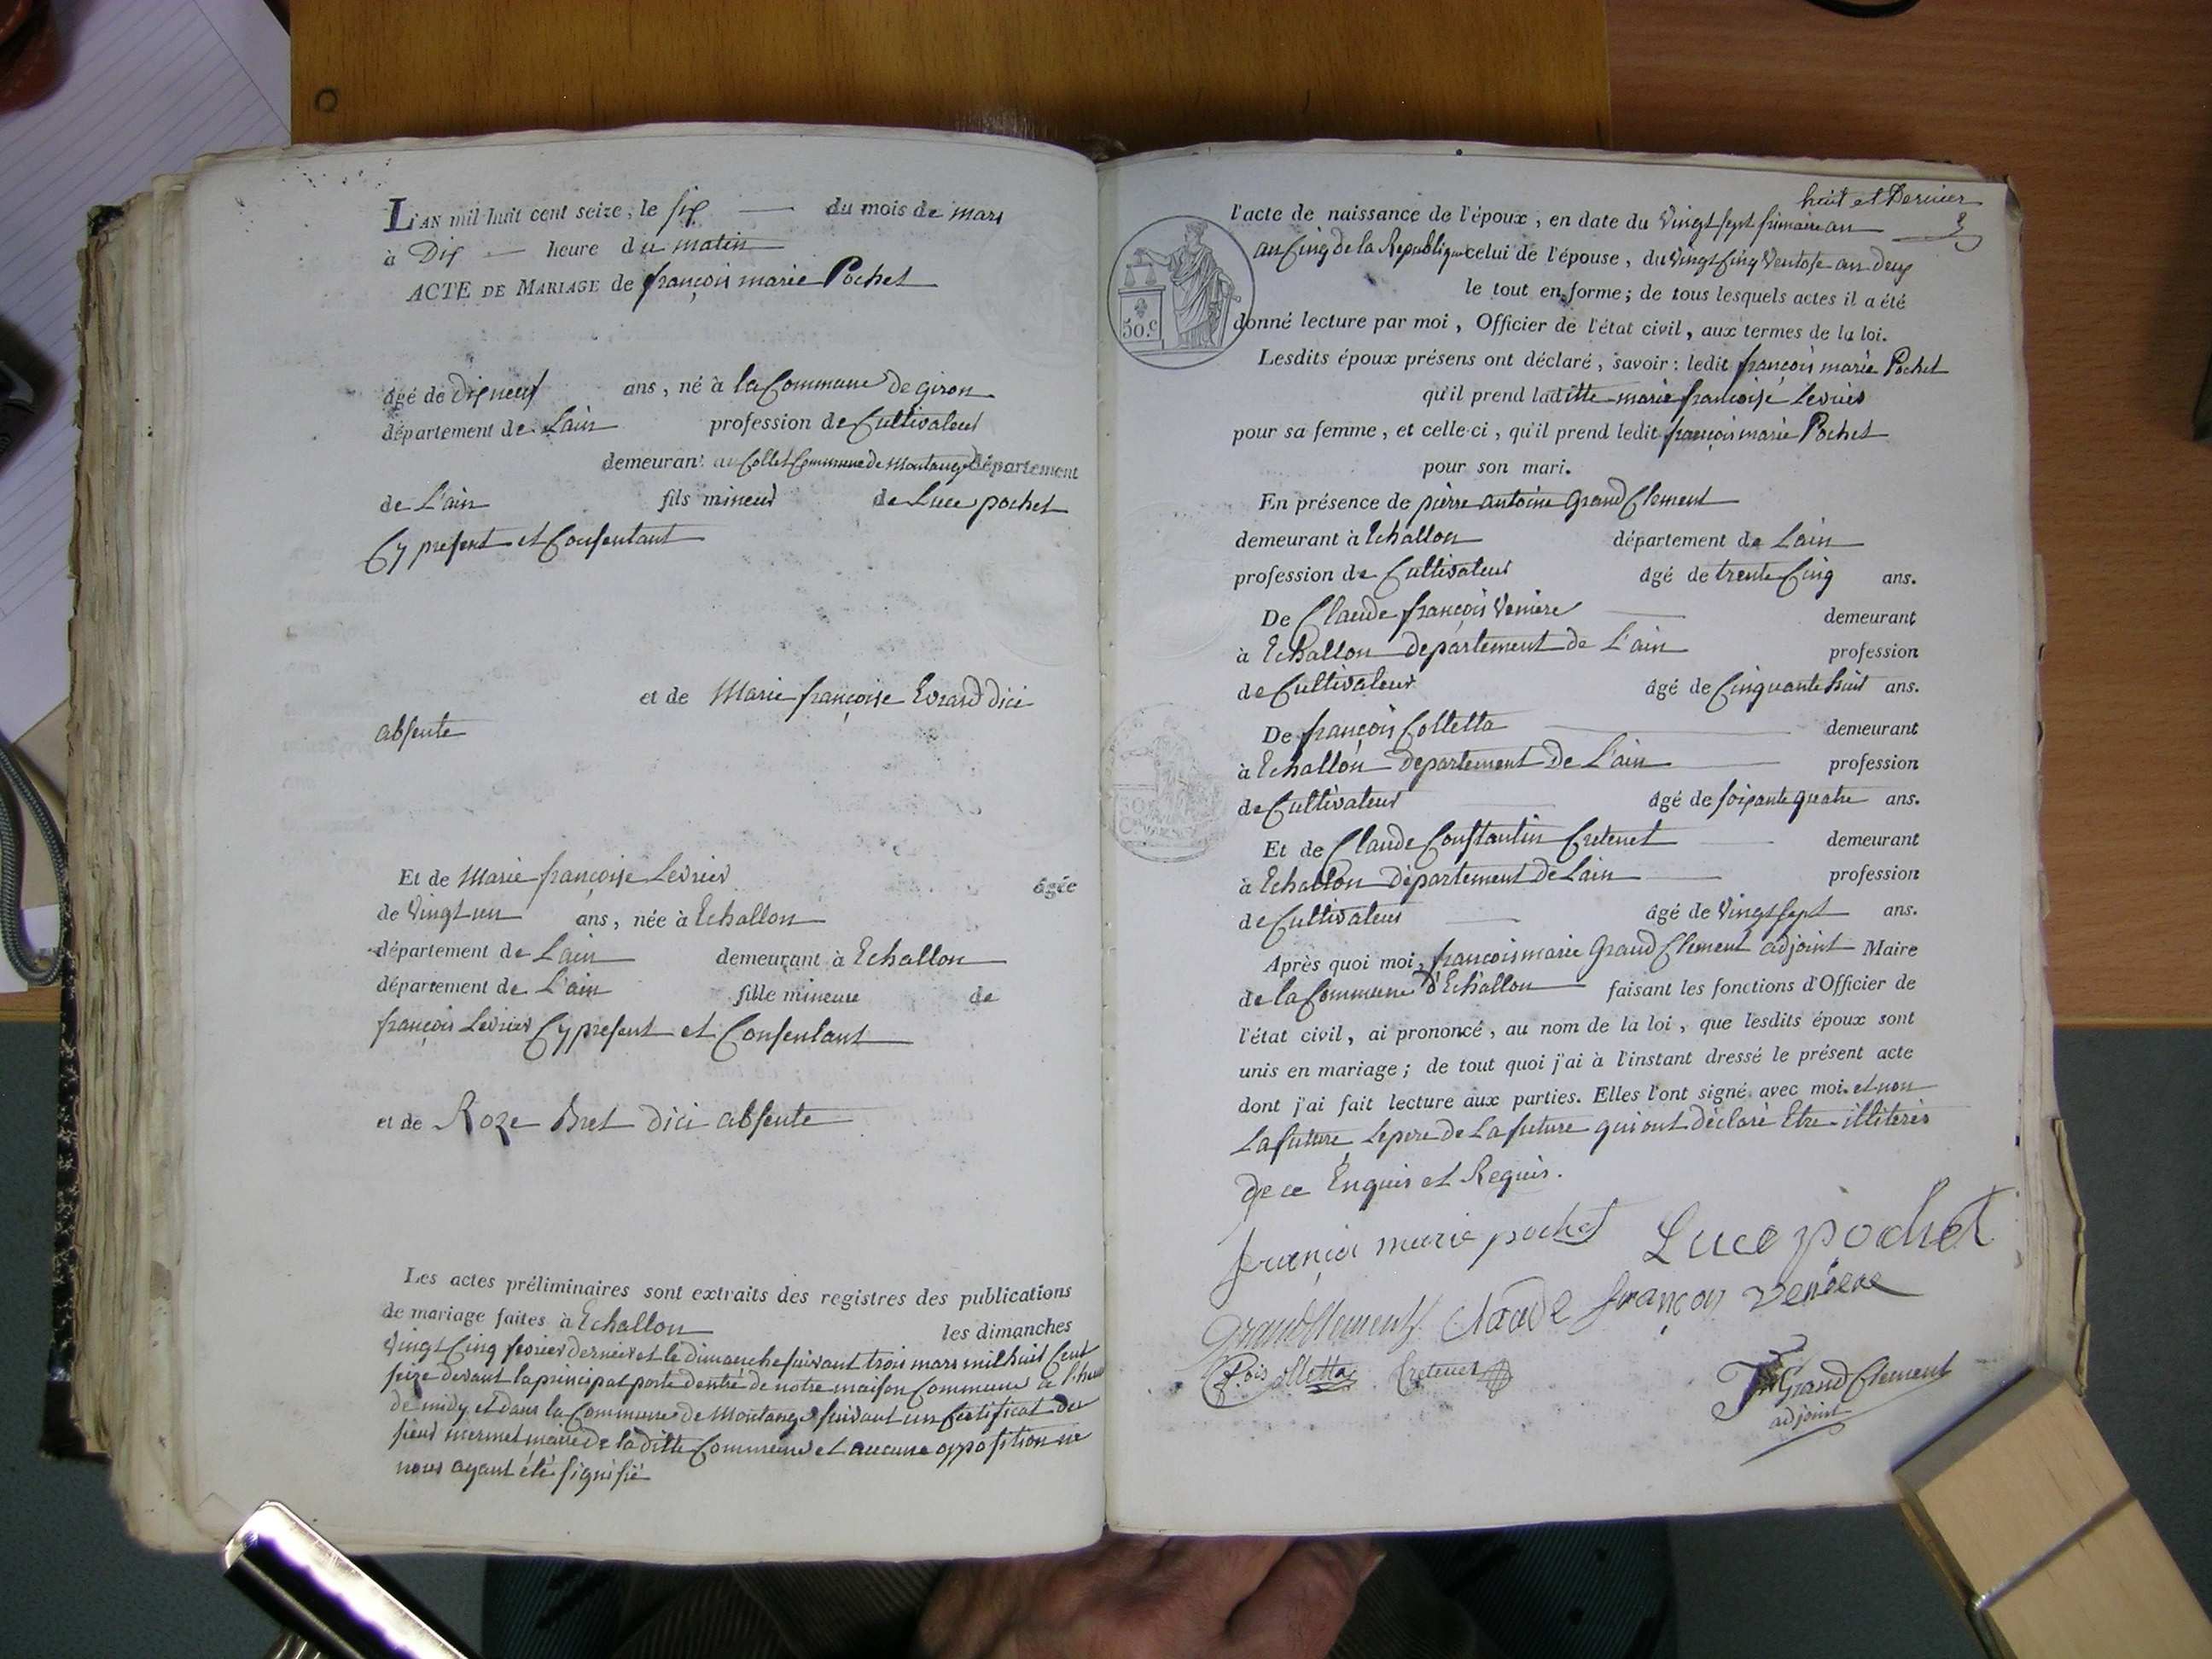 L'AN mil huit cent seize, le six du mois de mars
à Dix heure du matin
ACTE DE MARIAGE de françois marie Pochet
âgé de dixneuf ans, né à la Commune de giron
département de L'ain profession de Cultivateur
demeurant au Collet Commune de Montange département
de L'ain fils mineur de Luce pochet
Cy present et Consentant
et de Marie françoise Evrard dici
absente
Et de Marie françoise Levrier âgée
de Vingt un ans, née à Echallon
département de L'ain demeurant à Echallon
département de L'ain fille mineure de
françois Levrier Cy present et Consentant
et de Roze Bret dici absente
Les actes préliminaires sont extraits des registres des publications
de mariage faites à Echallon les dimanches
Vingt Cinq fevrier dernier et le dimanche suivant trois mars mil huit Cent
seize devant la principal porte dentré de notre maison Commune à l'heure
de midy et dans la Commune de Montange suivant un Certificat du
sieur mermet maire de la ditte Commune et aucune opposition ne
nous ayant été signifié
huit et Dernier
l'acte de naissance de l'époux, en date du Vingt sept frimaire an
an Cinq de la Republique celui de l'épouse, du Vingt Cinq Ventose an deux
le tout en forme; de tous lesquels actes il a été
50.c
donné lecture par moi, Officier de l'état civil, aux termes de la loi.
Lesdits époux présens ont déclaré, savoir: ledit françois marie Pochet
qu'il prend laditte marie françoise Levrier
pour sa femme, et celle-ci, qu'il prend ledit françois marie Pochet
pour son mari.
En présence de pierre antoine Grand Clement
demeurant à Echallon département de L'ain
profession de Cultivateur âgé de trente Cinq ans.
De Claude françois Veniere demeurant
à Echallon departement de L'ain profession
de Cultivateur âgé de Cinquante huit ans.
De françois Colletta demeurant
à Echallon departement de L'ain profession
de Cultivateur âgé de soixante quatre ans.
Et de Claude Constantin Cretenet demeurant
à Echallon département de L'ain profession
de Cultivateur âgé de Vingt sept ans.
Après quoi moi, françois marie Grand Clement adjoint Maire
de la Commune d'Echallon faisant les fonctions d'Officier de
l'état civil, ai prononcé, au nom de la loi, que lesdits époux sont
unis en mariage; de tout quoi j'ai à l'instant dressé le présent acte
dont j'ai fait lecture aux parties. Elles l'ont signé avec moi. et non
La future Le pere de La future qui ont déclaré Etre illiterés
de ce Enquis et Requis.
françoi marie pochet Luce pochet
Grand Clement Claude françoi Veniere
f.ois Colletta Cretenet
F M Grand Clement
adjoint